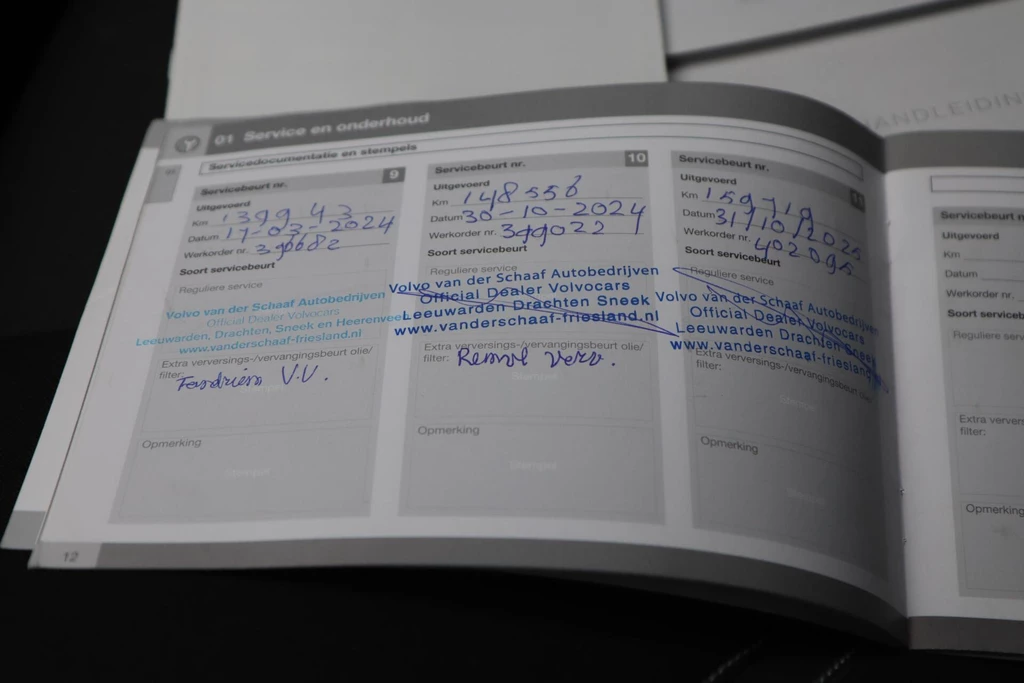 HANDLEIDIN
01 Service en onderhoud
Servicedocumentatie en stempels
Servicebeurt nr. 9
Uitgevoerd
Km 139943
Datum 11-03-2024
Werkorder nr. 390682
Soort servicebeurt
Reguliere service
Volvo van der Schaaf Autobedrijven
Official Dealer Volvocars
Leeuwarden, Drachten, Sneek en Heerenveen
www.vanderschaaf-friesland.nl
Extra verversings-/vervangingsbeurt olie/
filter:
V.V.
Opmerking
Servicebeurt nr. 10
Uitgevoerd
Km 148556
Datum 30-10-2024
Werkorder nr. 399022
Soort servicebeurt
Reguliere service
Volvo van der Schaaf Autobedrijven
Official Dealer Volvocars
Leeuwarden Drachten Sneek
www.vanderschaaf-friesland.nl
Extra verversings-/vervangingsbeurt olie/
filter:
Remvl verv.
Opmerking
Stempel
Servicebeurt nr. 11
Uitgevoerd
Km 159719
Datum 31/10/2025
Werkorder nr. 402095
Soort servicebeurt
Reguliere service
Volvo van der Schaaf Autobedrijven
Official Dealer Volvocars
Leeuwarden Drachten Sneek
www.vanderschaaf-friesland
Extra verversings-/vervangingsbeurt olie/
filter:
Stempel
Opmerking
Stempel
12
Servicebeurt n
Uitgevoerd
Km
Datum
Werkorder nr.
Soort serviceb
Reguliere serv
Extra ververs
filter:
Opmerking